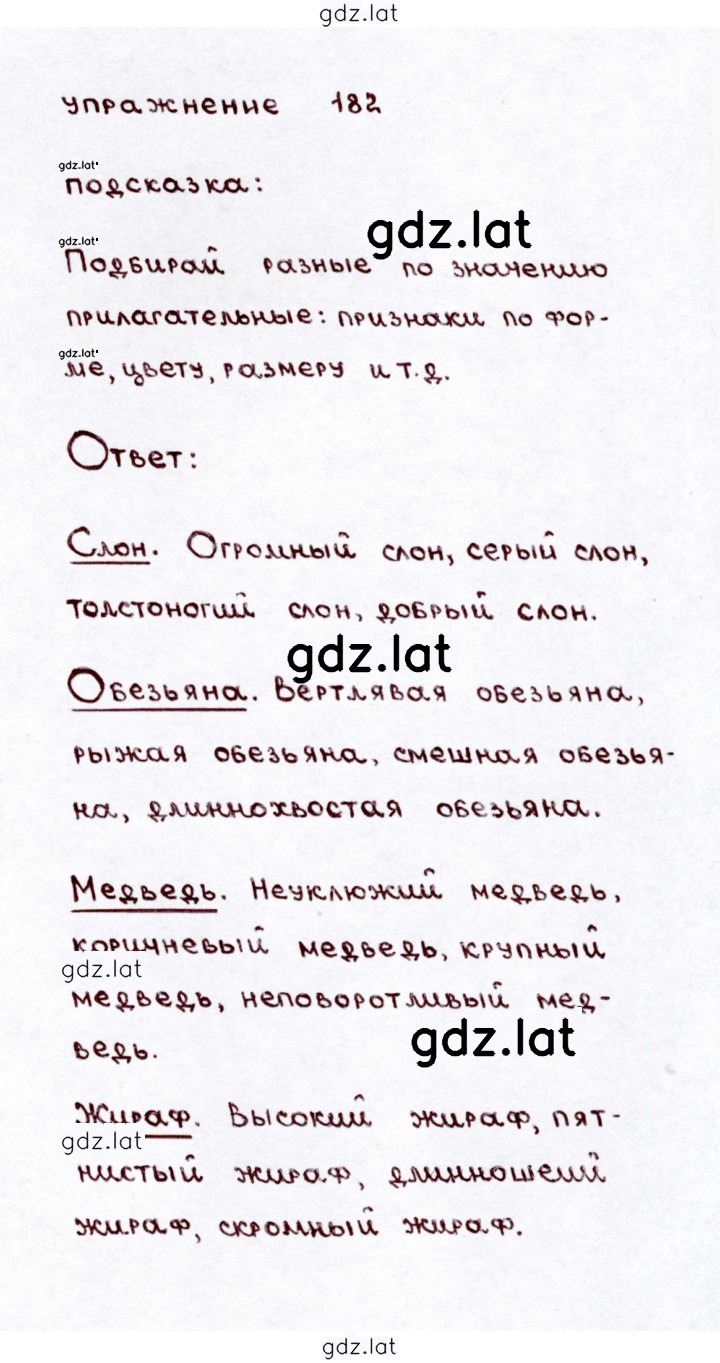 gdz.lat
упражнение 182
gdz.lat
подсказка:
gdz.lat
gdz.lat
Подбирай разные по значению
прилагательные: признаки по фор-
gdz.lat
ме, цвету, размеру и т.д.
Ответ:
Слон. Огромный слон, серый слон,
толстоногий слон, добрый слон.
gdz.lat
Обезьяна. Вертлявая обезьяна,
рыжая обезьяна, смешная обезья-
на, длиннохвостая обезьяна.
Медведь. Неуклюжий медведь,
коричневый медведь, крупный
gdz.lat
медведь, неповоротливый мед-
gdz.lat
ведь.
Жираф. Высокий жираф, пят-
gdz.lat
нистый жираф, длинношеий
жираф, скромный жираф.
gdz.lat